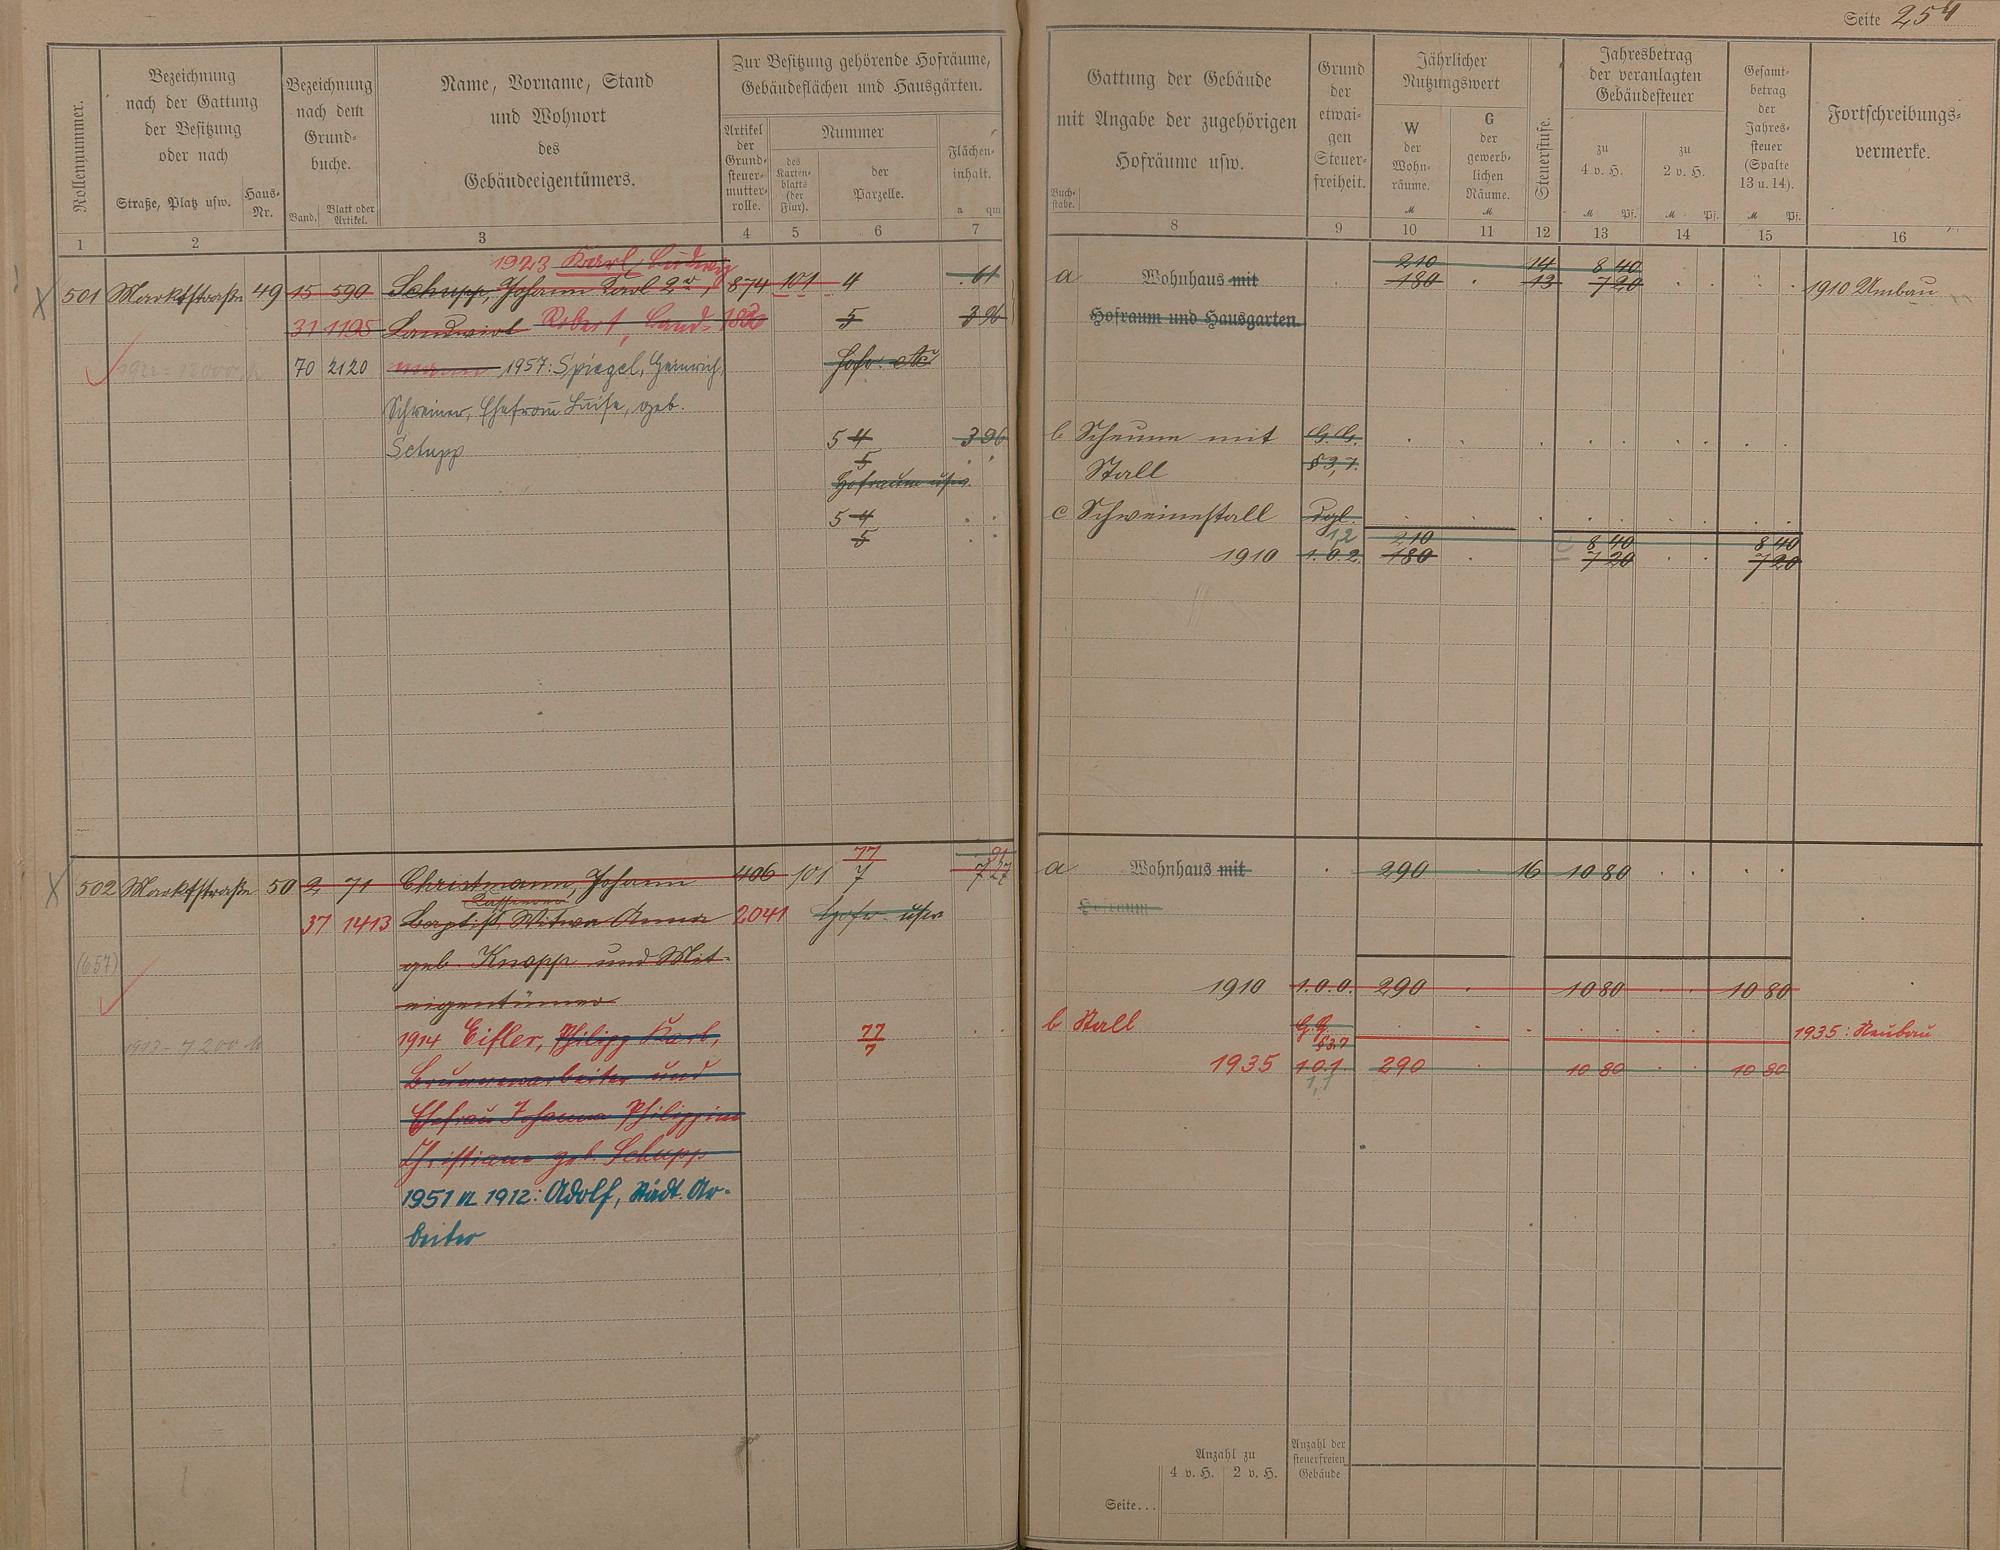 Seite 254
Rollennummer.
Bezeichnung
nach der Gattung
der Besitzung
oder nach
Straße, Platz usw.
Haus-
Nr.
Bezeichnung
nach dem
Grund-
buche.
Band.
Blatt oder
Artikel.
Name, Vorname, Stand
und Wohnort
des
Gebäudeeigentümers.
Zur Besitzung gehörende Hofräume,
Gebäudeflächen und Hausgärten.
Artikel
der
Grund-
steuer-
mutter-
rolle.
Nummer
des
Karten-
blatts
(der
Flur).
der
Parzelle.
Flächen-
inhalt.
a qm
Gattung der Gebäude
mit Angabe der zugehörigen
Hofräume usw.
Buch-
stabe.
Grund
der
etwai-
gen
Steuer-
freiheit.
Jährlicher
Nutzungswert
W
der
Wohn-
räume.
M
G
der
gewerb-
lichen
Räume.
M
Steuerstufe.
Jahresbetrag
der veranlagten
Gebäudesteuer
zu
4 v. H.
M Pf.
zu
2 v. H.
M Pf.
Gesamt-
betrag
der
Jahres-
steuer
(Spalte
13 u. 14).
M Pf.
Fortschreibungs-
vermerke.
1 2 3 4 5 6 7 8 9 10 11 12 13 14 15 16
1923 Karl, Ludwig
210 14 8 40
501 Marktstraße 49 15 590 Schupp, Johann Karl 2r, 874 101 4 61 a Wohnhaus mit 180 13 7 20 1910 Umbau
31 1195 Landwirt Robert, Land- 5 3 96 Hofraum und Hausgarten.
70 2120 mann 1957: Spiegel, Heinrich, Hofr. etc
Schreiner, Ehefrau Luise, geb.
Schupp 5 4 3 96 b Scheune mit G.G.
5 Stall § 3,7.
Hofraum usw.
5 4 c Schweinestall Dgl.
5 1,2 210 8 40 8 40
1910 1.0.2. 180 7 20 7 20
77
502 Marktstraße 50 2 71 Christmann, Johann 406 101 7 7 27 a Wohnhaus mit 290 16 10 80
37 1413 Baptist, Witwe Anna 2041 Hofr. usw Hofraum
(657) geb. Knapp und Mit-
eigentümer 1910 1.0.0. 290 10 80 10 80
1914 Eifler, Philipp Karl, 77 b Stall G.G. 1935: Neubau
7 § 3.7
1913 - 7200 M
Brunnenarbeiter und 1935 1.0.1. 290 10 80 10 80
1,1
Ehefrau Johanna Philippine
Christiane geb. Schupp
1951 N 1912: Adolf, Städt. Ar-
beiter
Anzahl zu
4 v. H. 2 v. H.
Anzahl der
steuerfreien
Gebäude
Seite...